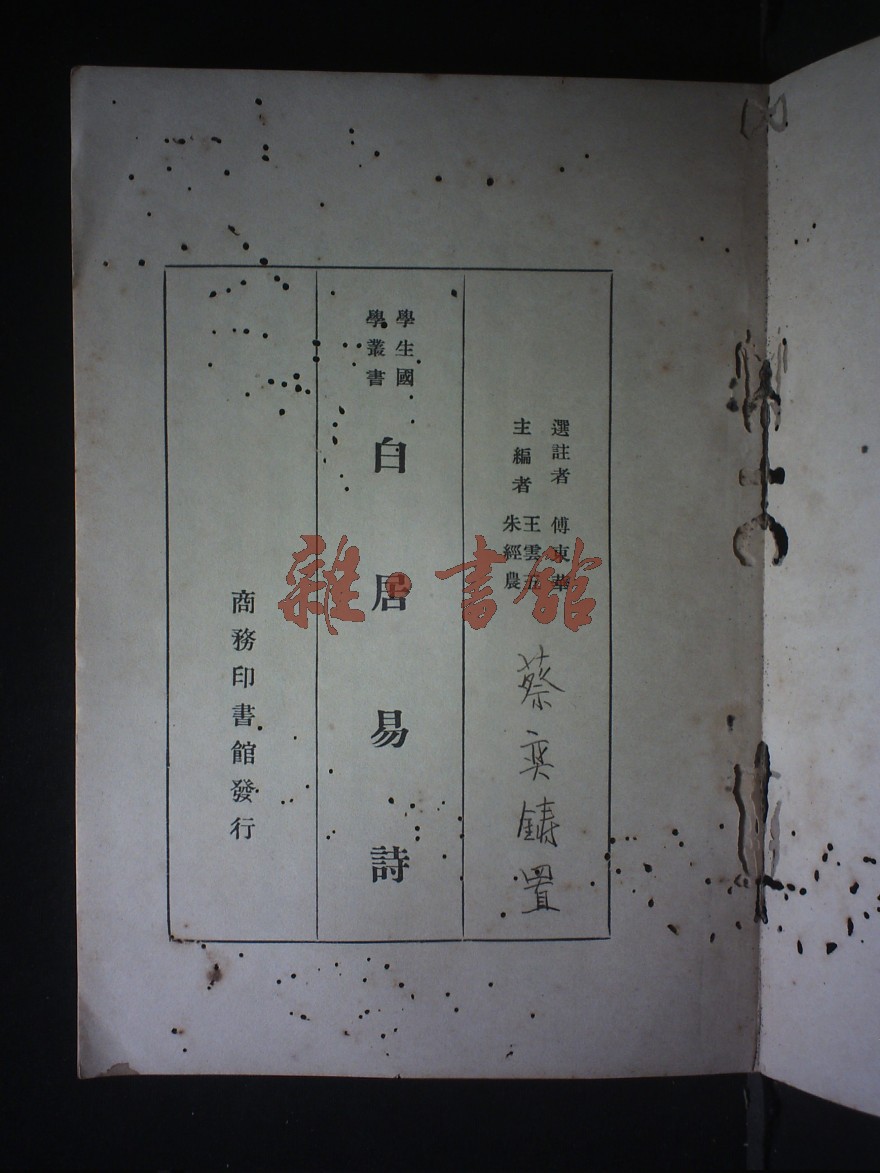 選註者 傅東華
主編者 王雲五
朱經農
蔡奕鑄置
學生國
學叢書
白居易詩
商務印書館發行
雜書館